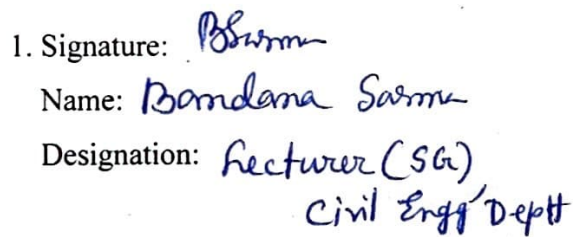 1. Signature: BSarma
Name: Bandana Sarma
Designation: Lecturer (SG)
Civil Engg' Deptt